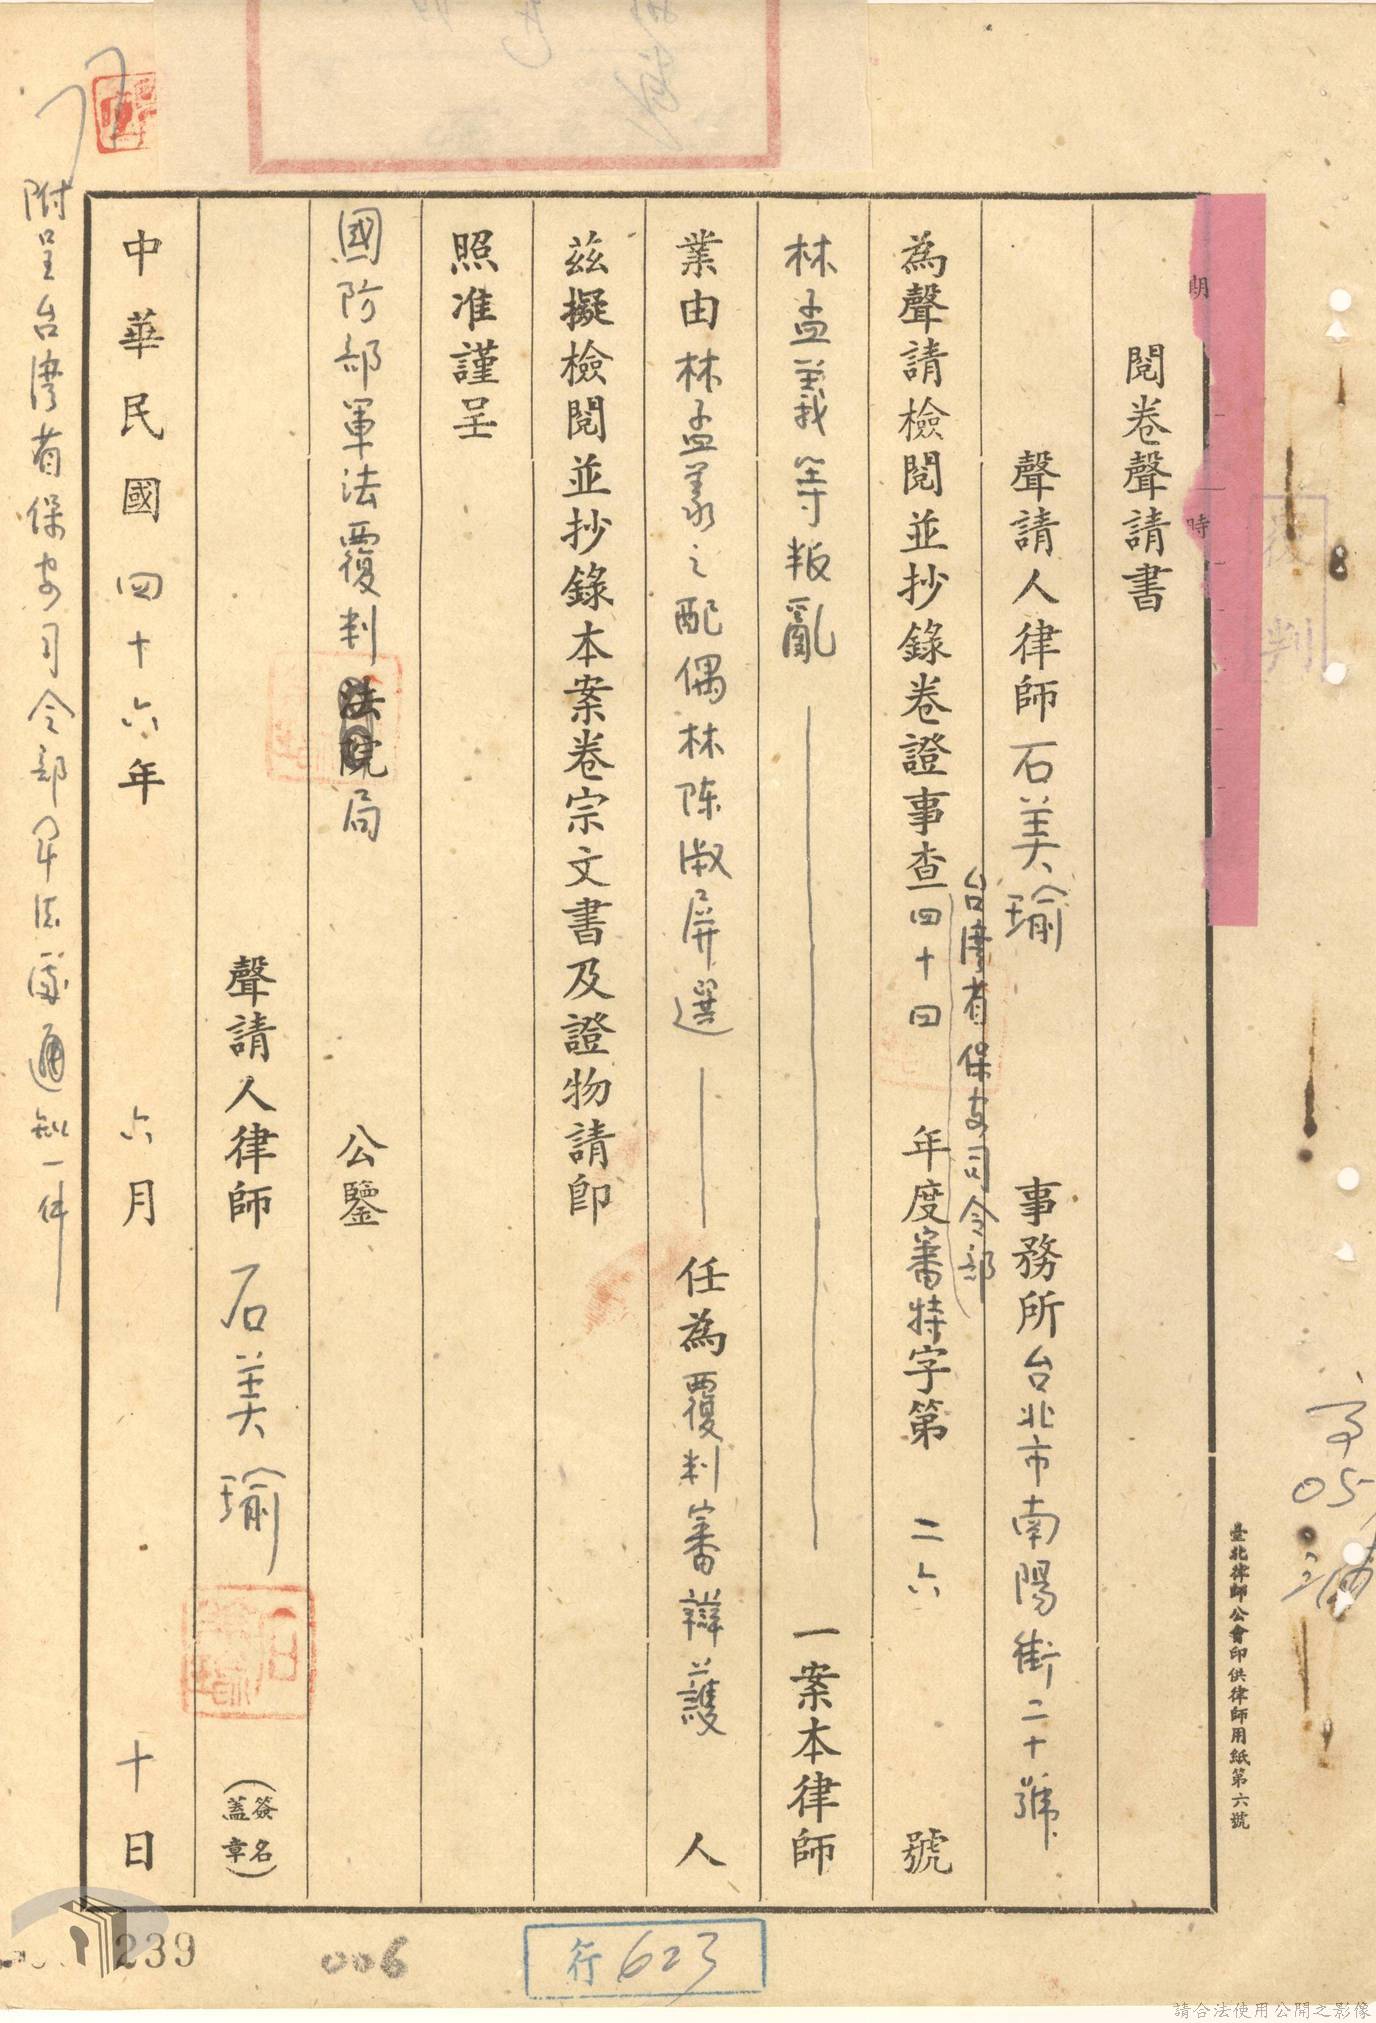 閱卷聲請書
聲請人律師石美瑜 事務所台北市南陽街二十號
台灣省保安司令部
為聲請檢閱並抄錄卷證事查四十四年度審特字第二六號
林孟義等叛亂 一案本律師
業由林孟義之配偶林陈淑屏選 任為覆判審辯護人
茲擬檢閱並抄錄本案卷宗文書及證物請卽
照准謹呈
國防部軍法覆判法院局 公鑒
聲請人律師石美瑜
(簽名蓋章)
中華民國四十六年六月十日
附呈台灣省保安司令部軍法處通知一件
臺北律師公會印供律師用紙第六號
覆判
期
時
239
006
行623
請合法使用公開之影像